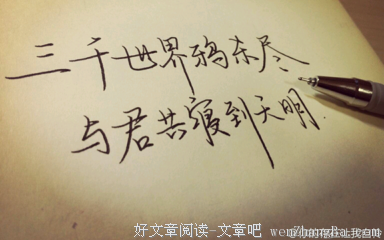 三千世界鸦杀尽
与君共寝到天明.
好文章阅读-文章吧 wenZhangBa.com